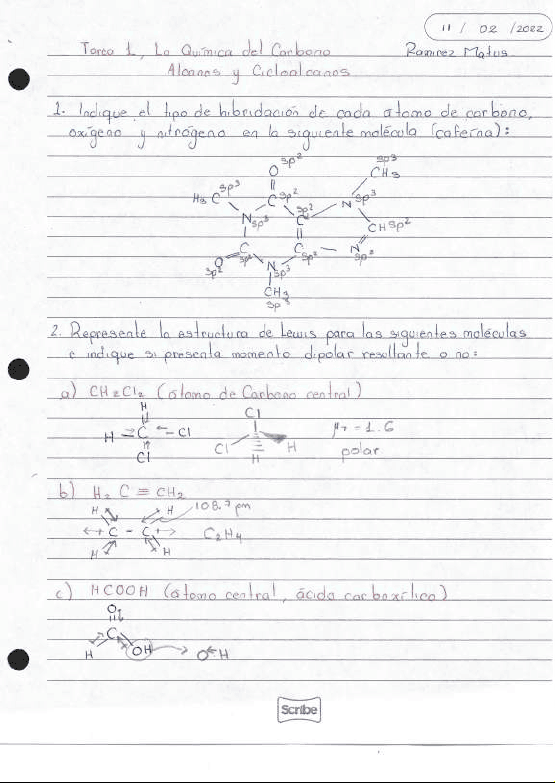 11 / 02 / 2022
Tarea 1, La Química del Carbono Ramirez Matus
Alcanos y Cicloalcanos
1. Indique el tipo de hibridación de cada átomo de carbono,
oxígeno y nitrógeno en la siguiente molécula (cafeína):
sp2 sp3
O CH3
sp3 sp2 sp3
H3 C C sp2 N
N sp3 C CH sp2
C sp2 C sp2 N
O sp2 N sp3
CH3
sp3
2. Represente la estructura de Lewis para las siguientes moléculas
e indique si presenta momento dipolar resultante o no:
a) CH2Cl2 (átomo de Carbono central)
H Cl
H C Cl μT = 1.6
Cl Cl H H polar
b) H2 C = CH2
H H 108.7 pm
C - C C2H4
H H
c) HCOOH (átomo central, ácido carboxílico)
O
C
H OH O H
Scribe